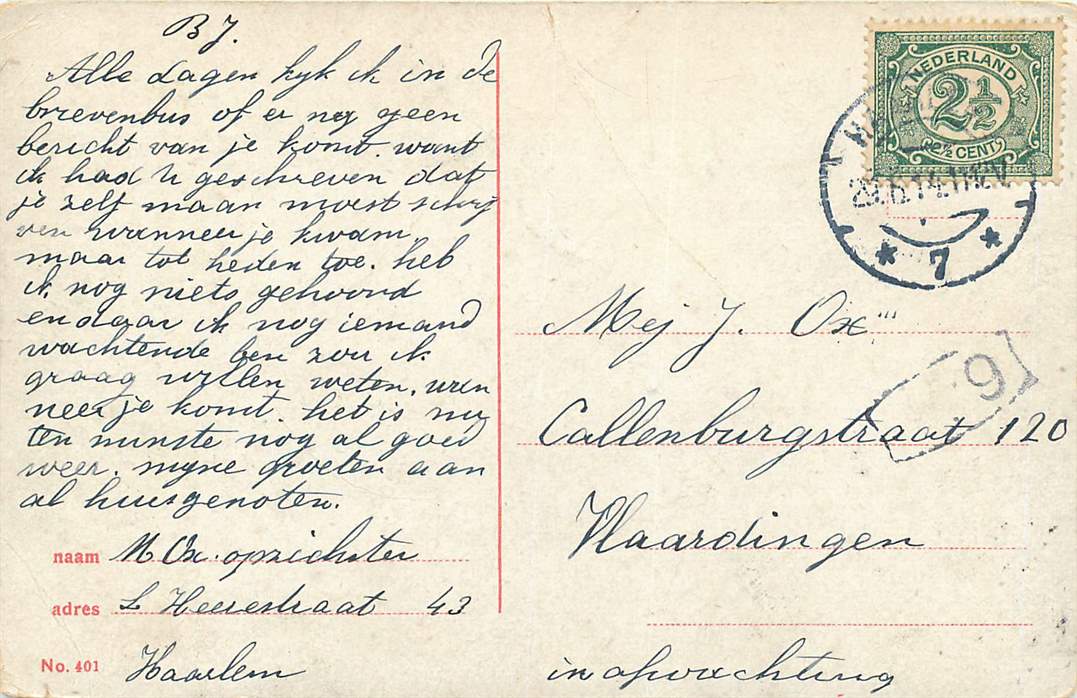 B J.
Alle dagen kyk ik in de
brievenbus of er nog geen
bericht van je komt. want
ik had U geschreven dat
je zelf maar moest schry
ven wanneer je kwam
maar tot heden toe. heb
ik nog niets gehoord
en daar ik nog iemand
wachtende ben zou ik
graag willen weten. wan
neer je komt. het is nu
ten minste nog al goed
weer. myne groeten aan
al huisgenoten.
naam M Ox. opzichter
adres L Heerestraat 43
No. 401 Haarlem
NEDERLAND
2 1/2
2½ CENT
7
Mej J. Ox
9
Callenburgstraat 120
Vlaardingen
in afwachting